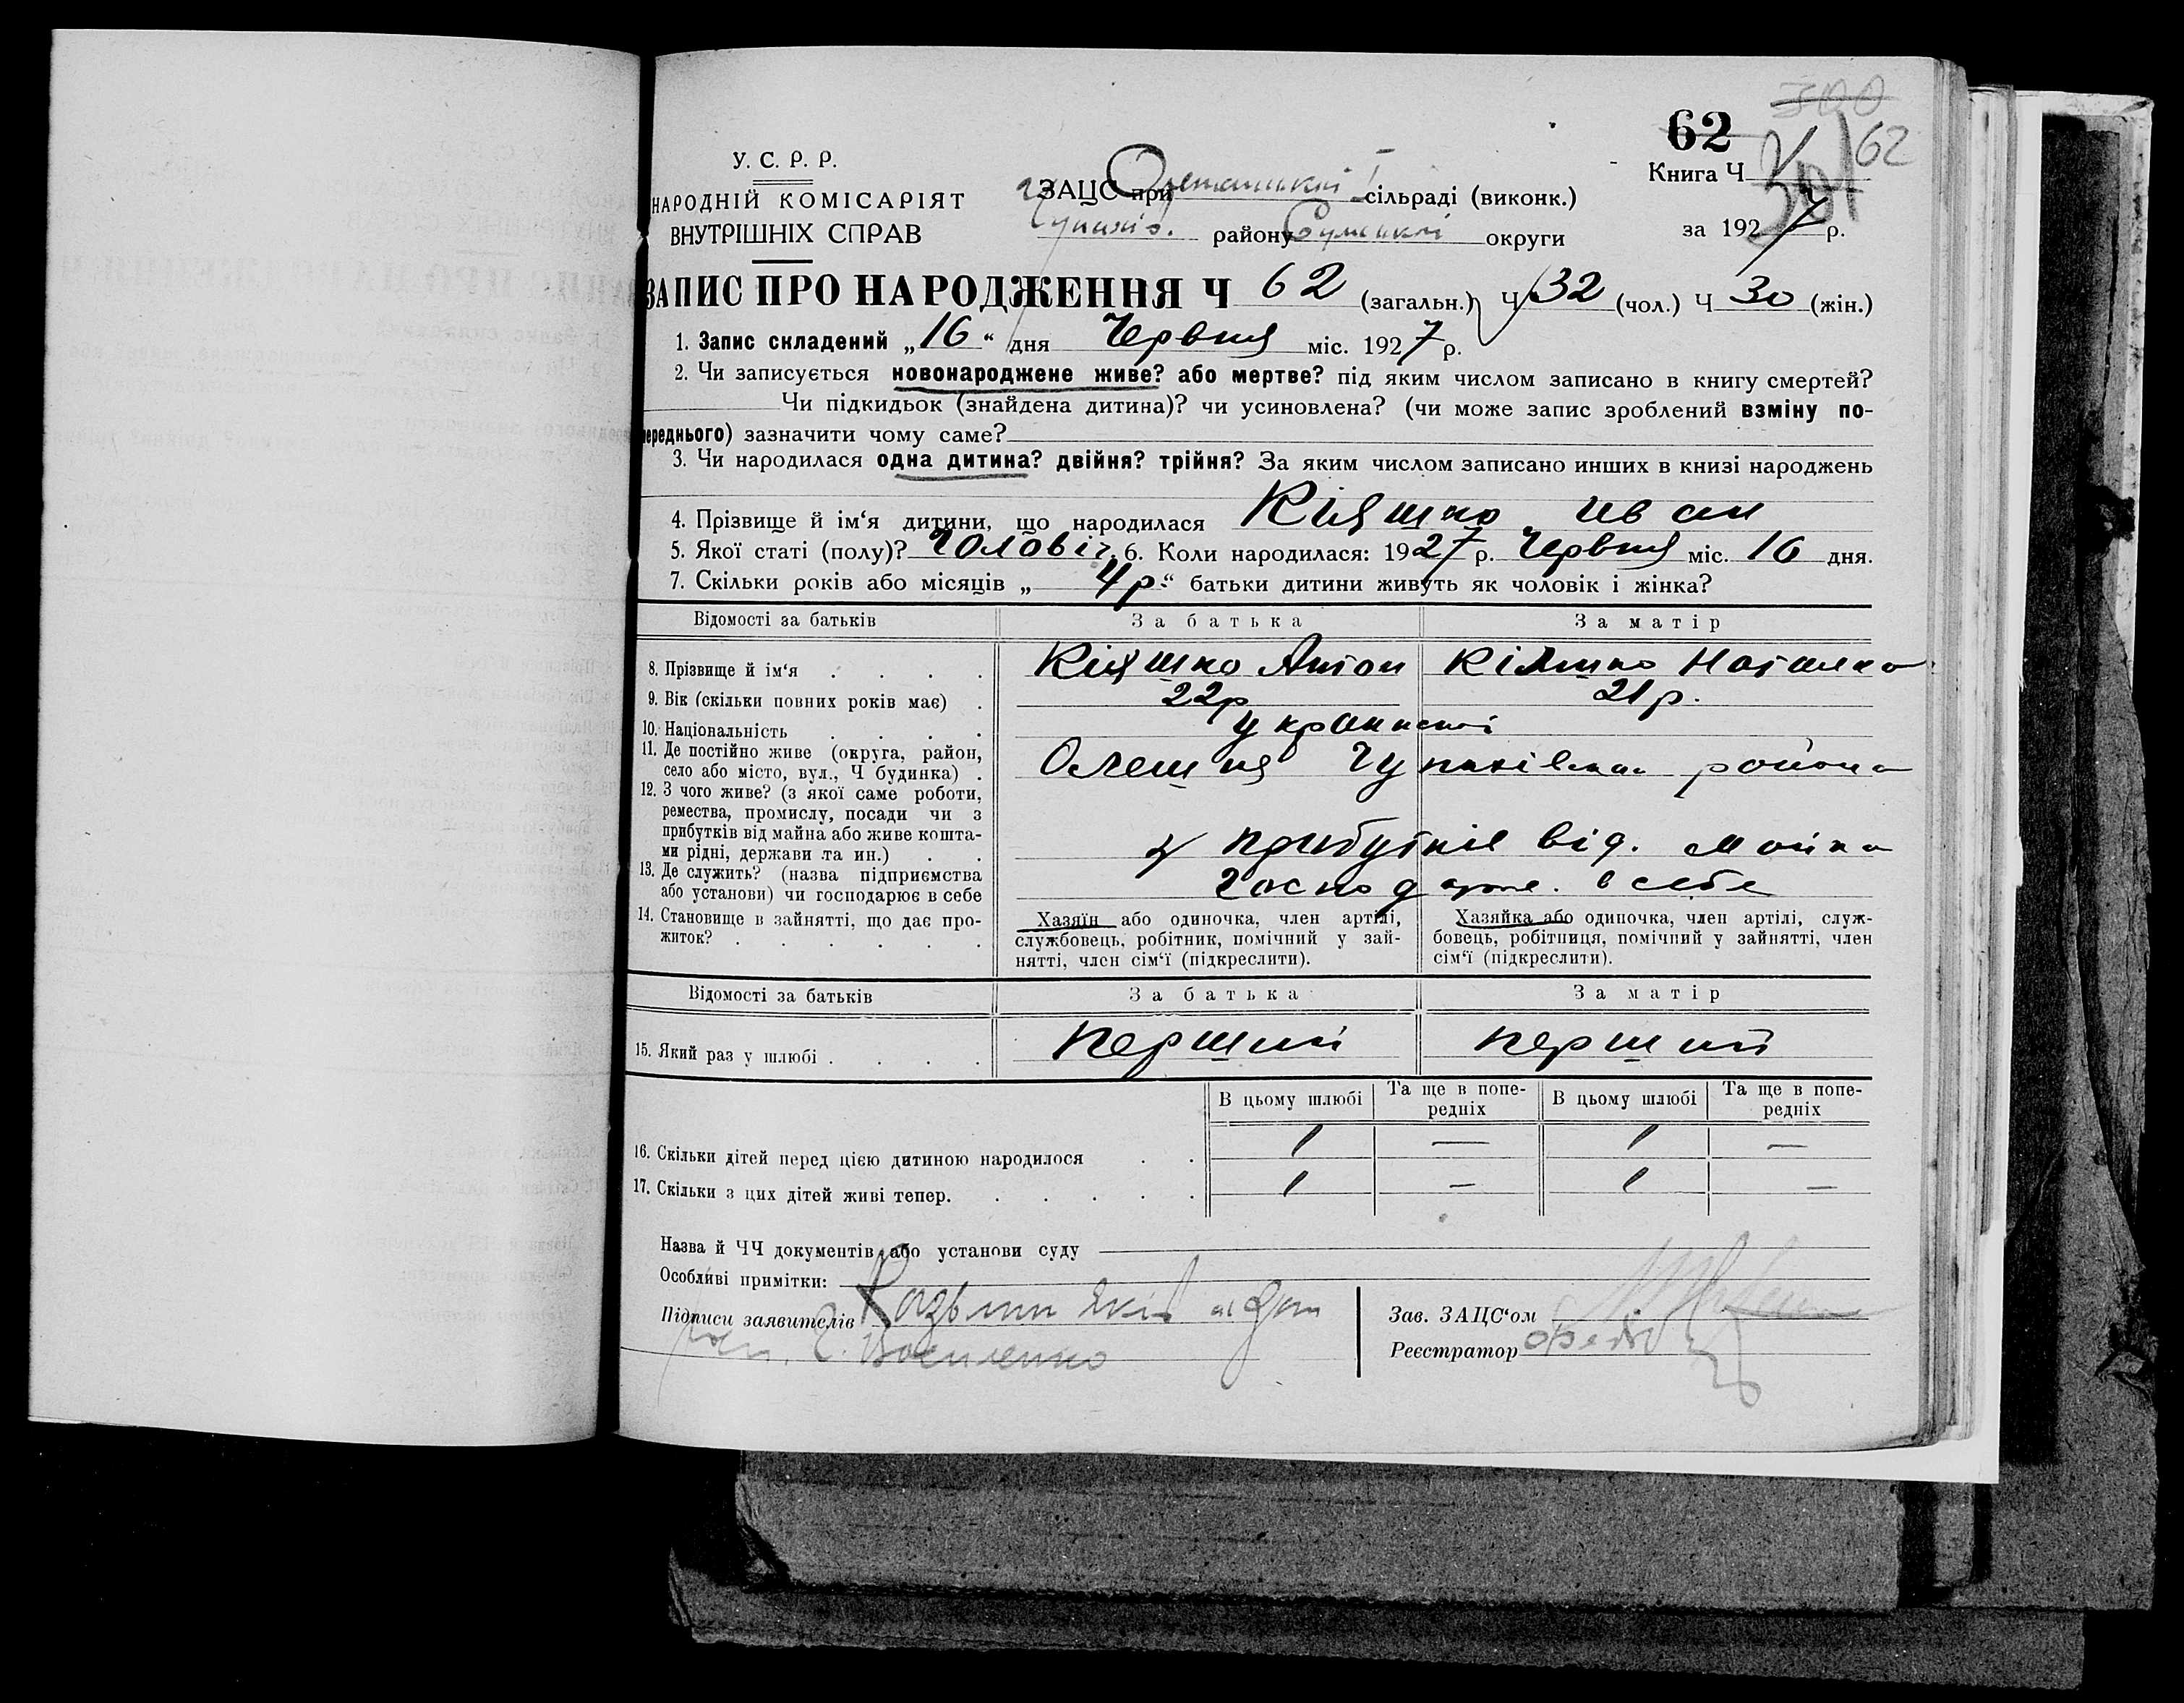 62
62
У. С. Р. Р.
НАРОДНІЙ КОМІСАРІЯТ
ВНУТРІШНІХ СПРАВ
ЗАЦС при сільраді (виконк.)
району Сумської округи
Книга Ч
за 1927 р.
ЗАПИС ПРО НАРОДЖЕННЯ Ч 62 (загальн.) Ч 32 (чол.) Ч 30 (жін.)
1. Запис складений „16“ дня Червня міс. 1927 р.
2. Чи записується новонароджене живе? або мертве? під яким числом записано в книгу смертей?
Чи підкидьок (знайдена дитина)? чи усиновлена? (чи може запис зроблений взміну по-
переднього) зазначити чому саме?
3. Чи народилася одна дитина? двійня? трійня? За яким числом записано инших в книзі народжень
4. Прізвище й ім‘я дитини, що народилася Кіяшко Иван
5. Якої статі (полу)? Чоловіч. 6. Коли народилася: 1927 р. Червня міс. 16 дня.
7. Скільки років або місяців „4р.“ батьки дитини живуть як чоловік і жінка?
Відомості за батьків За батька За матір
8. Прізвище й ім‘я Кіяшко Антон Кіяшко Наталка
9. Вік (скільки повних років має) 22р 21р.
10. Національність українські
11. Де постійно живе (округа, район,
село або місто, вул., Ч будинка) Олешня Чупахівська района
12. З чого живе? (з якої саме роботи,
ремества, промислу, посади чи з
прибутків від майна або живе кошта-
ми рідні, держави та ин.) з прибутків від. майна
13. Де служить? (назва підприємства
або установи) чи господарює в себе господарює. в себе
14. Становище в зайнятті, що дає про-
житок?
Хазяїн або одиночка, член артілі,
службовець, робітник, помічний у зай-
нятті, член сім‘ї (підкреслити).
Хазяйка або одиночка, член артілі, служ-
бовець, робітниця, помічний у зайнятті, член
сім‘ї (підкреслити).
Відомості за батьків За батька За матір
15. Який раз у шлюбі Перший перший
В цьому шлюбі Та ще в попе-
редніх В цьому шлюбі Та ще в попе-
редніх
16. Скільки дітей перед цією дитиною народилося 1 — 1 —
17. Скільки з цих дітей живі тепер. 1 — 1 —
Назва й ЧЧ документів або установи суду
Особливі примітки:
Підписи заявителів
Василенко
Зав. ЗАЦС‘ом
Реєстратор